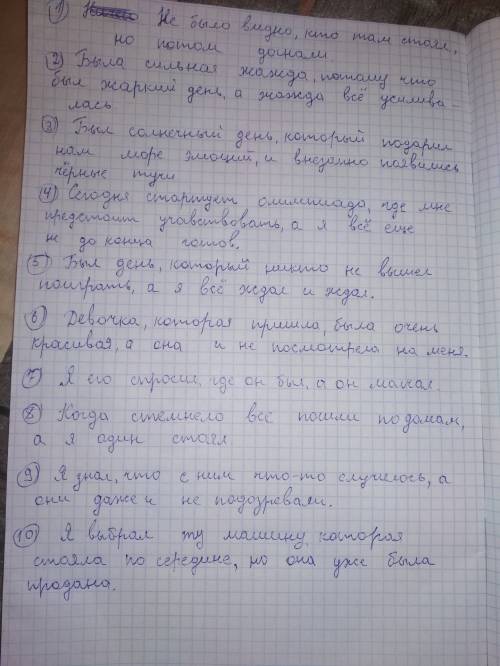 1) Не было видно, кто там стоял,
но потом догнали
2) Была сильная жажда, потому что
был жаркий день, а жажда всё усилива-
лась
3) Был солнечный день, который подарил
нам море эмоций, и внезапно появились
чёрные тучи
4) Сегодня стартует олимпиада, где мне
предстоит учавствовать, а я всё еще
не до конца готов.
5) Был день, который никто не вышел
поиграть, а я всё ждал и ждал.
6) Девочка, которая пришла, была очень
красивая, а она и не посмотрела на меня.
7) Я его спросил, где он был, а он молчал.
8) Когда стемнело все пошли по домам,
а я один стоял
9) Я знал, что с ним что-то случилось, а
они даже и не подозревали.
10) Я выбрал ту машину, которая
стояла по середине, но она уже была
продана.